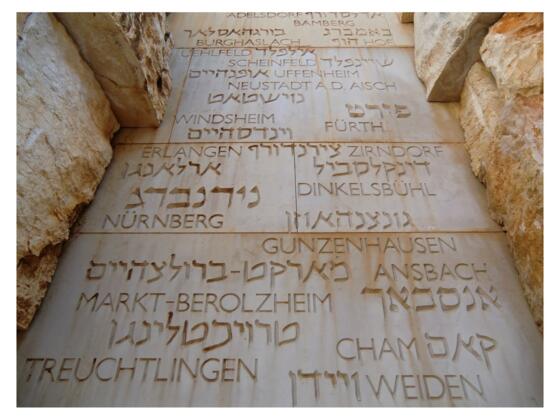 ADELSDORF אדלסדורף
BAMBERG
בורגהאסלאך באמברג
BURGHASLACH הוף HOF
UEHLFELD אילפלד
SCHEINFELD שיינפלד
אופנהיים UFFENHEIM
NEUSTADT A.D. AISCH
נוישטאט
פירט
WINDSHEIM FÜRTH
וינדסהיים
ERLANGEN צירנדורף ZIRNDORF
ארלאנגן דינקלסביל
נירנברג DINKELSBÜHL
NÜRNBERG גונצנהאוזן
GUNZENHAUSEN
מארקט-ברולצהיים ANSBACH
MARKT-BEROLZHEIM אנסבאך
טרויכטלינגן CHAM קאם
TREUCHTLINGEN
ויידן WEIDEN